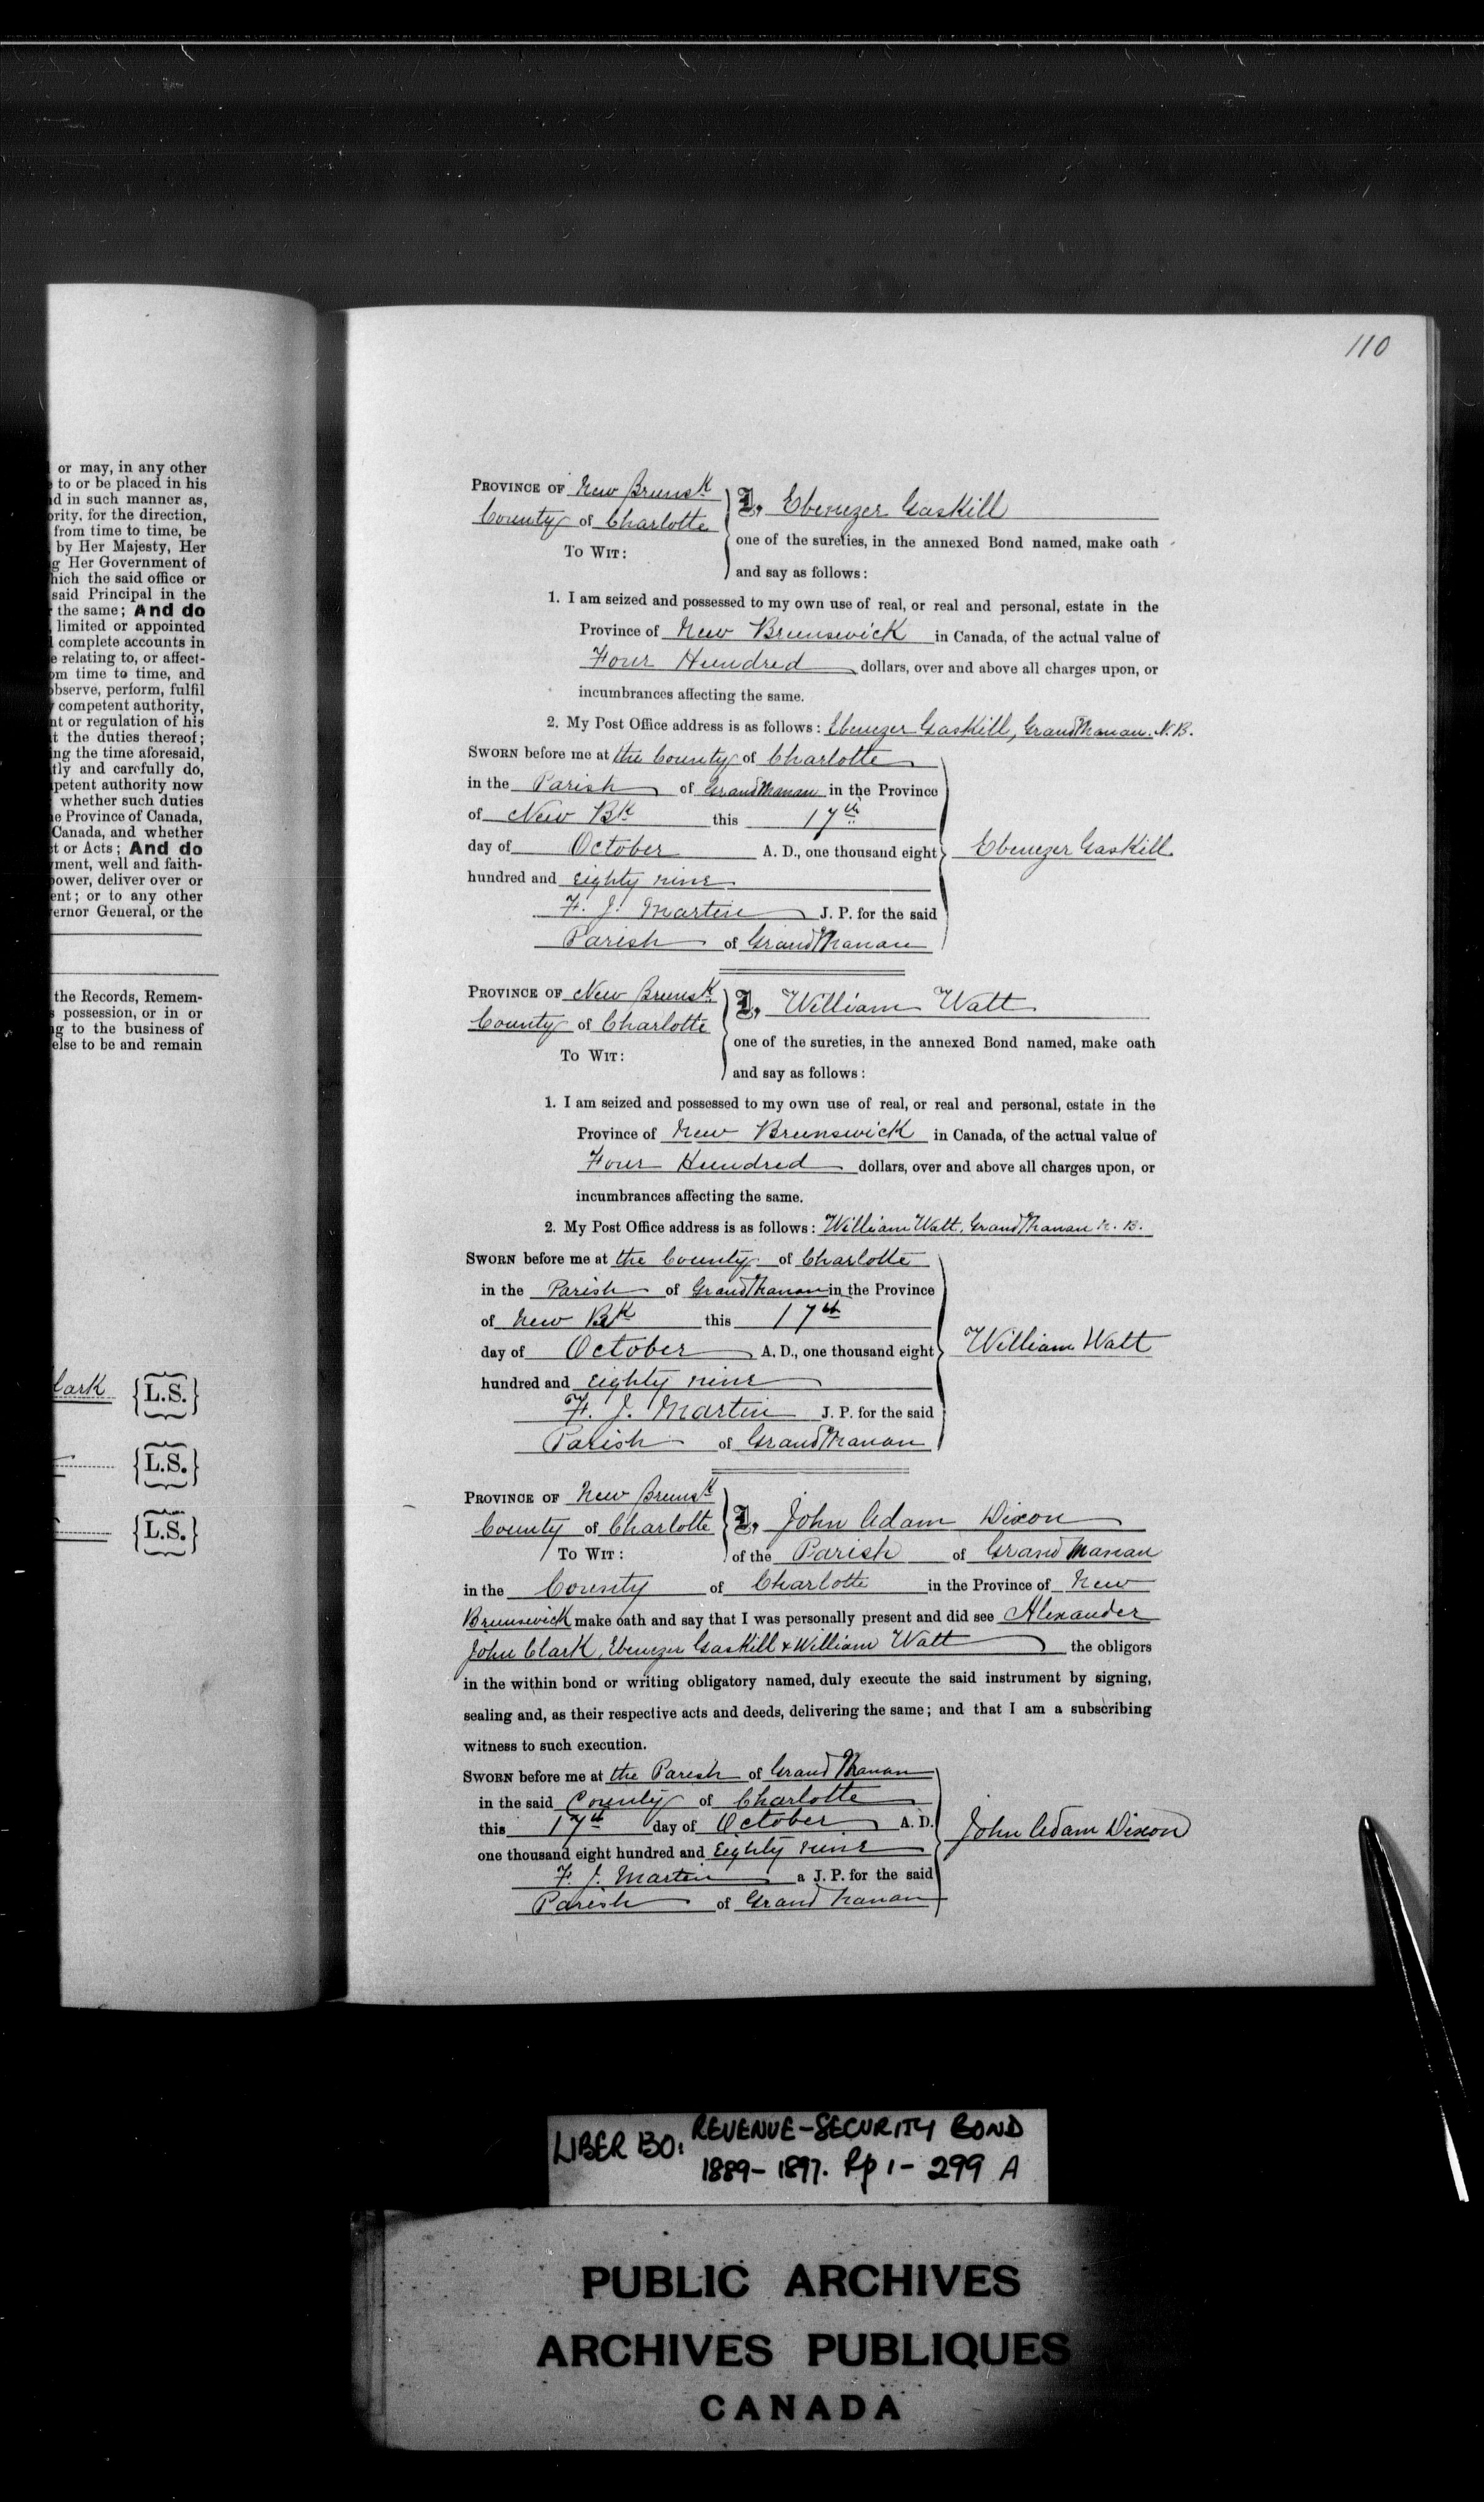 or may, in any other
to or be placed in his
d in such manner as,
ority, for the direction,
from time to time, be
by Her Majesty, Her
g Her Government of
hich the said office or
said Principal in the
the same; And do
limited or appointed
complete accounts in
e relating to, or affect-
om time to time, and
observe, perform, fulfil
competent authority,
nt or regulation of his
t the duties thereof;
ing the time aforesaid,
tly and carefully do,
petent authority now
whether such duties
e Province of Canada,
Canada, and whether
t or Acts; And do
ment, well and faith-
power, deliver over or
ent; or to any other
ernor General, or the
the Records, Remem-
possession, or in or
g to the business of
else to be and remain
lark {L.S.}
{L.S.}
{L.S.}
110
PROVINCE OF New Brunsk
County of Charlotte
TO WIT:
I, Ebenezer Gaskill
one of the sureties, in the annexed Bond named, make oath
and say as follows:
1. I am seized and possessed to my own use of real, or real and personal, estate in the
Province of New Brunswick in Canada, of the actual value of
Four Hundred dollars, over and above all charges upon, or
incumbrances affecting the same.
2. My Post Office address is as follows: Ebenezer Gaskill, Grand Manan. N. B.
SWORN before me at the County of Charlotte
in the Parish of Grand Manan in the Province
of New Bk this 17th
day of October A. D., one thousand eight
hundred and eighty nine
F. J. Martin J. P. for the said
Parish of Grand Manan
Ebenezer Gaskill.
PROVINCE OF New Brunsk
County of Charlotte
TO WIT:
I, William Watt
one of the sureties, in the annexed Bond named, make oath
and say as follows:
1. I am seized and possessed to my own use of real, or real and personal, estate in the
Province of New Brunswick in Canada, of the actual value of
Four Hundred dollars, over and above all charges upon, or
incumbrances affecting the same.
2. My Post Office address is as follows: William Watt, Grand Manan N. B.
SWORN before me at the County of Charlotte
in the Parish of Grand Manan in the Province
of New Bk this 17th
day of October A. D., one thousand eight
hundred and eighty nine
F. J. Martin J. P. for the said
Parish of Grand Manan
William Watt
PROVINCE OF New Brunsk
County of Charlotte
TO WIT:
I, John Adam Dixon
of the Parish of Grand Manan
in the County of Charlotte in the Province of New
Brunswick make oath and say that I was personally present and did see Alexander
John Clark, Ebenezer Gaskill & William Watt the obligors
in the within bond or writing obligatory named, duly execute the said instrument by signing,
sealing and, as their respective acts and deeds, delivering the same; and that I am a subscribing
witness to such execution.
SWORN before me at the Parish of Grand Manan
in the said County of Charlotte
this 17th day of October A. D.
one thousand eight hundred and Eighty nine
F. J. Martin a J. P. for the said
Parish of Grand Manan
John Adam Dixon
LIBER 130: REVENUE-SECURITY BOND
1889-1897. Pp 1-299 A
PUBLIC ARCHIVES
ARCHIVES PUBLIQUES
CANADA